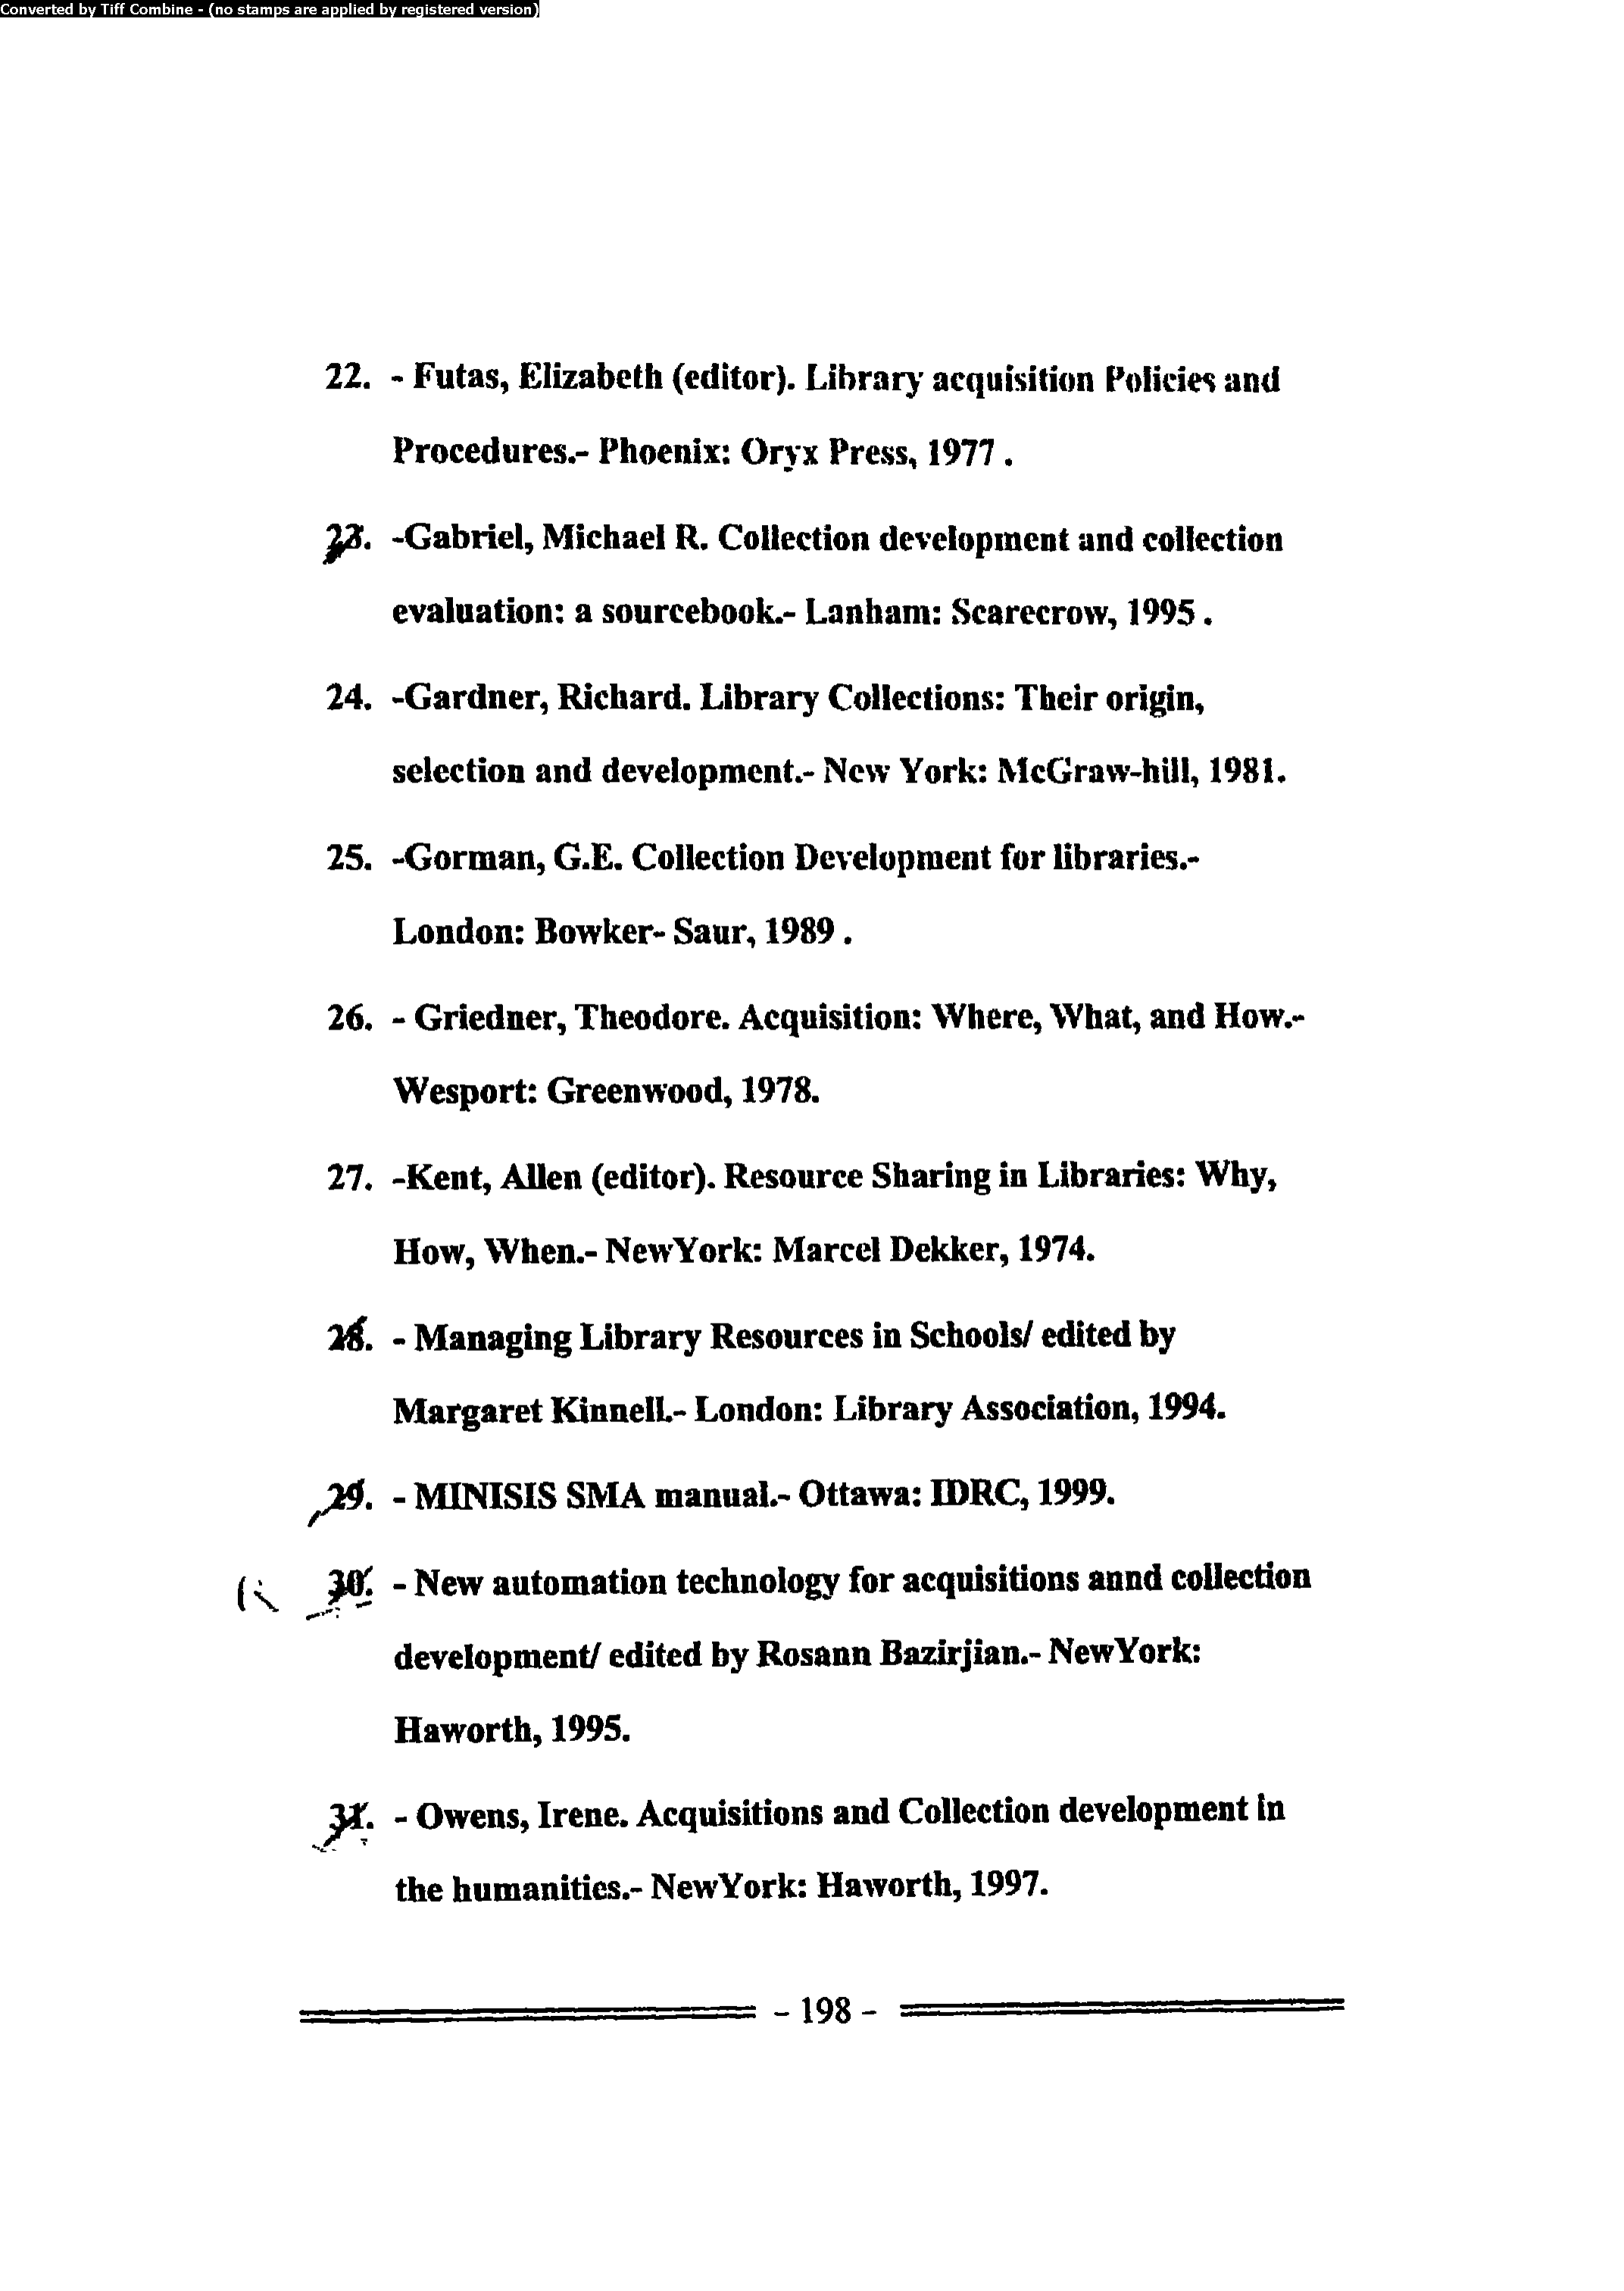 Converted by Tiff Combine - (no stamps are applied by registered version)
22. - Futas, Elizabeth (editor). Library acquisition Policies and
Procedures.- Phoenix: Oryx Press, 1977 .
23. -Gabriel, Michael R. Collection development and collection
evaluation: a sourcebook.- Lanham: Scarecrow, 1995 .
24. -Gardner, Richard. Library Collections: Their origin,
selection and development.- New York: McGraw-hill, 1981.
25. -Gorman, G.E. Collection Development for libraries.-
London: Bowker- Saur, 1989 .
26. - Griedner, Theodore. Acquisition: Where, What, and How.-
Wesport: Greenwood, 1978.
27. -Kent, Allen (editor). Resource Sharing in Libraries: Why,
How, When.- NewYork: Marcel Dekker, 1974.
28. - Managing Library Resources in Schools/ edited by
Margaret Kinnell.- London: Library Association, 1994.
29. - MINISIS SMA manual.- Ottawa: IDRC, 1999.
30. - New automation technology for acquisitions annd collection
development/ edited by Rosann Bazirjian.- NewYork:
Haworth, 1995.
31. - Owens, Irene. Acquisitions and Collection development in
the humanities.- NewYork: Haworth, 1997.
- 198 -